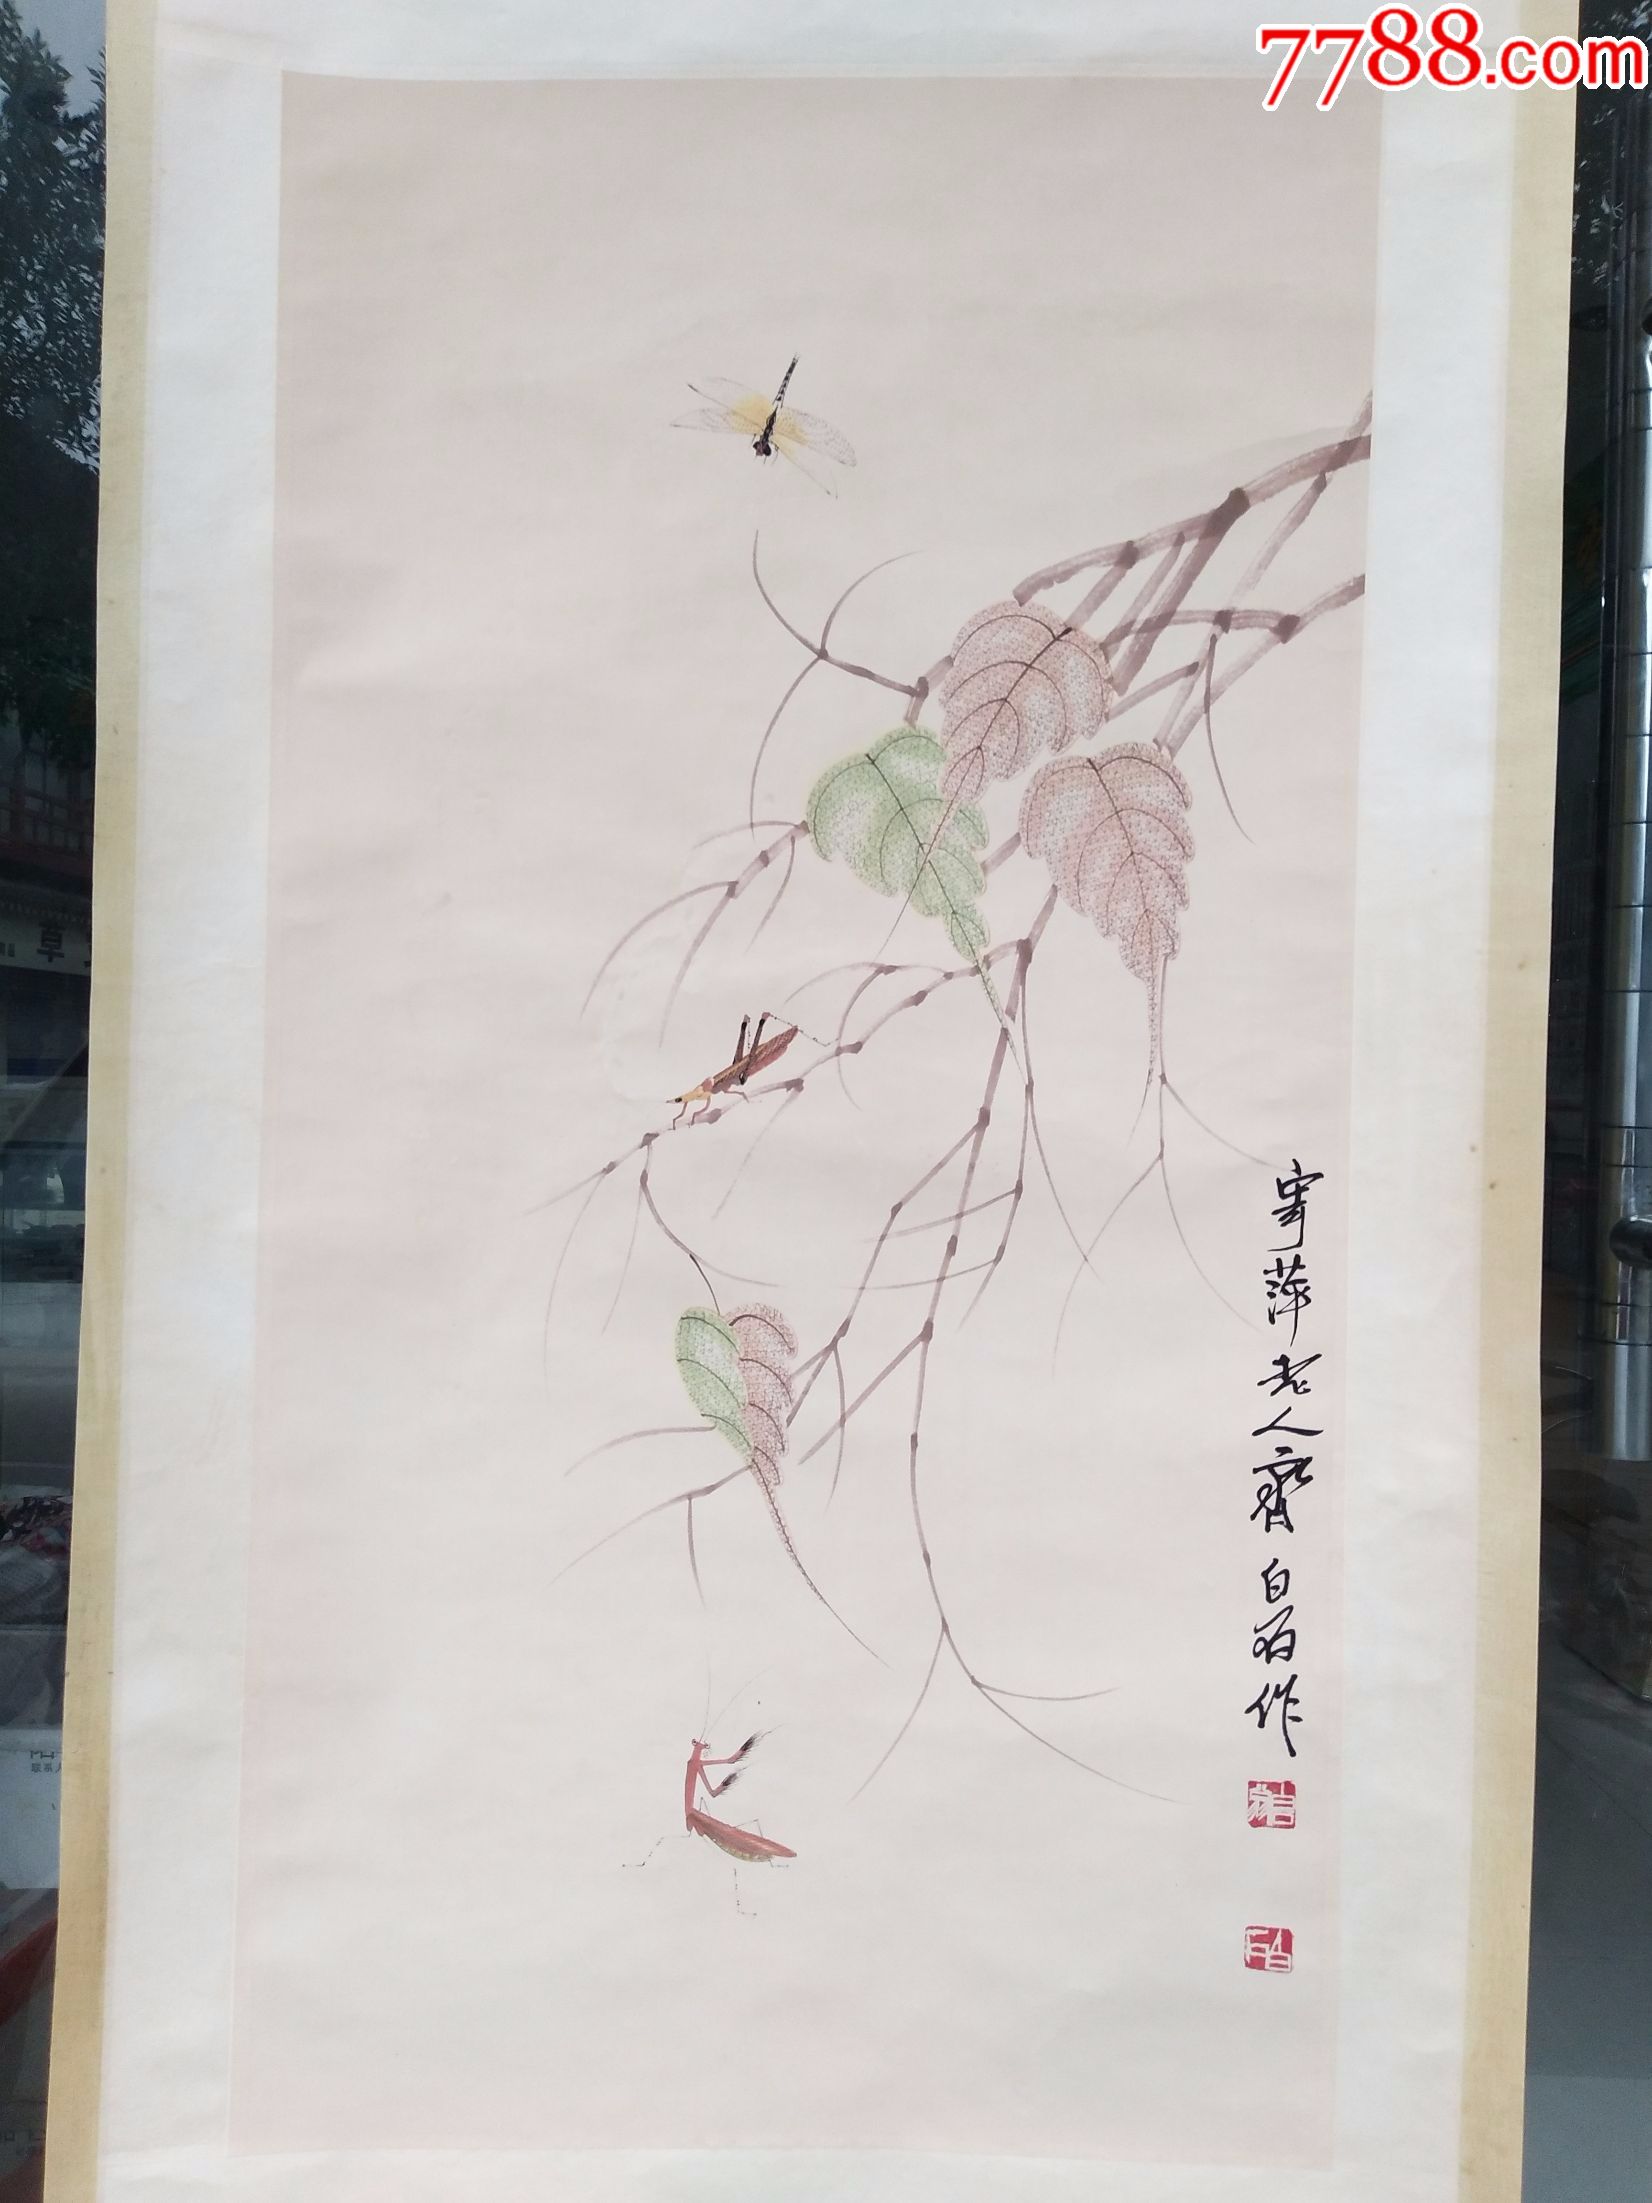 7788.com
寄萍老人齊白石作
草
联系人